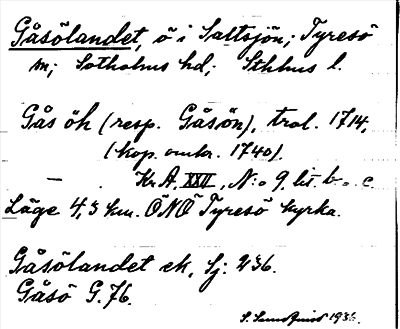 Gåsölandet, ö i Saltsjön; Tyresö
sn; Sotholms hd; Sthlms l.
Gås öh (resp. Gåsön), trol. 1714,
(kop. omkr. 1740).
— . Kr. A. XXII, N:o 9 lit. b o. c
Läge 4,3 km. ÖNÖ Tyresö kyrka.
Gåsölandet ek, Sj: 236.
Gåsö G. 76.
S. Sundqvist 1936.